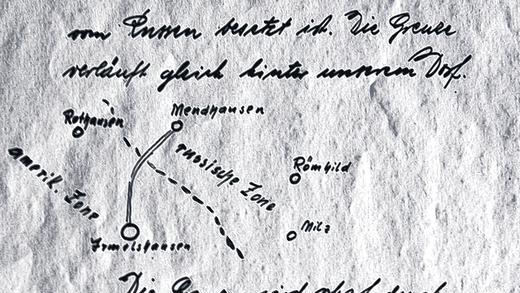 vom Russen besetzt ist. Die Grenze
verläuft gleich hinter unserem Dorf.
Rothausen
Mendhausen
amerik. Zone
russische Zone
Römhild
Milz
Irmelshausen
Die